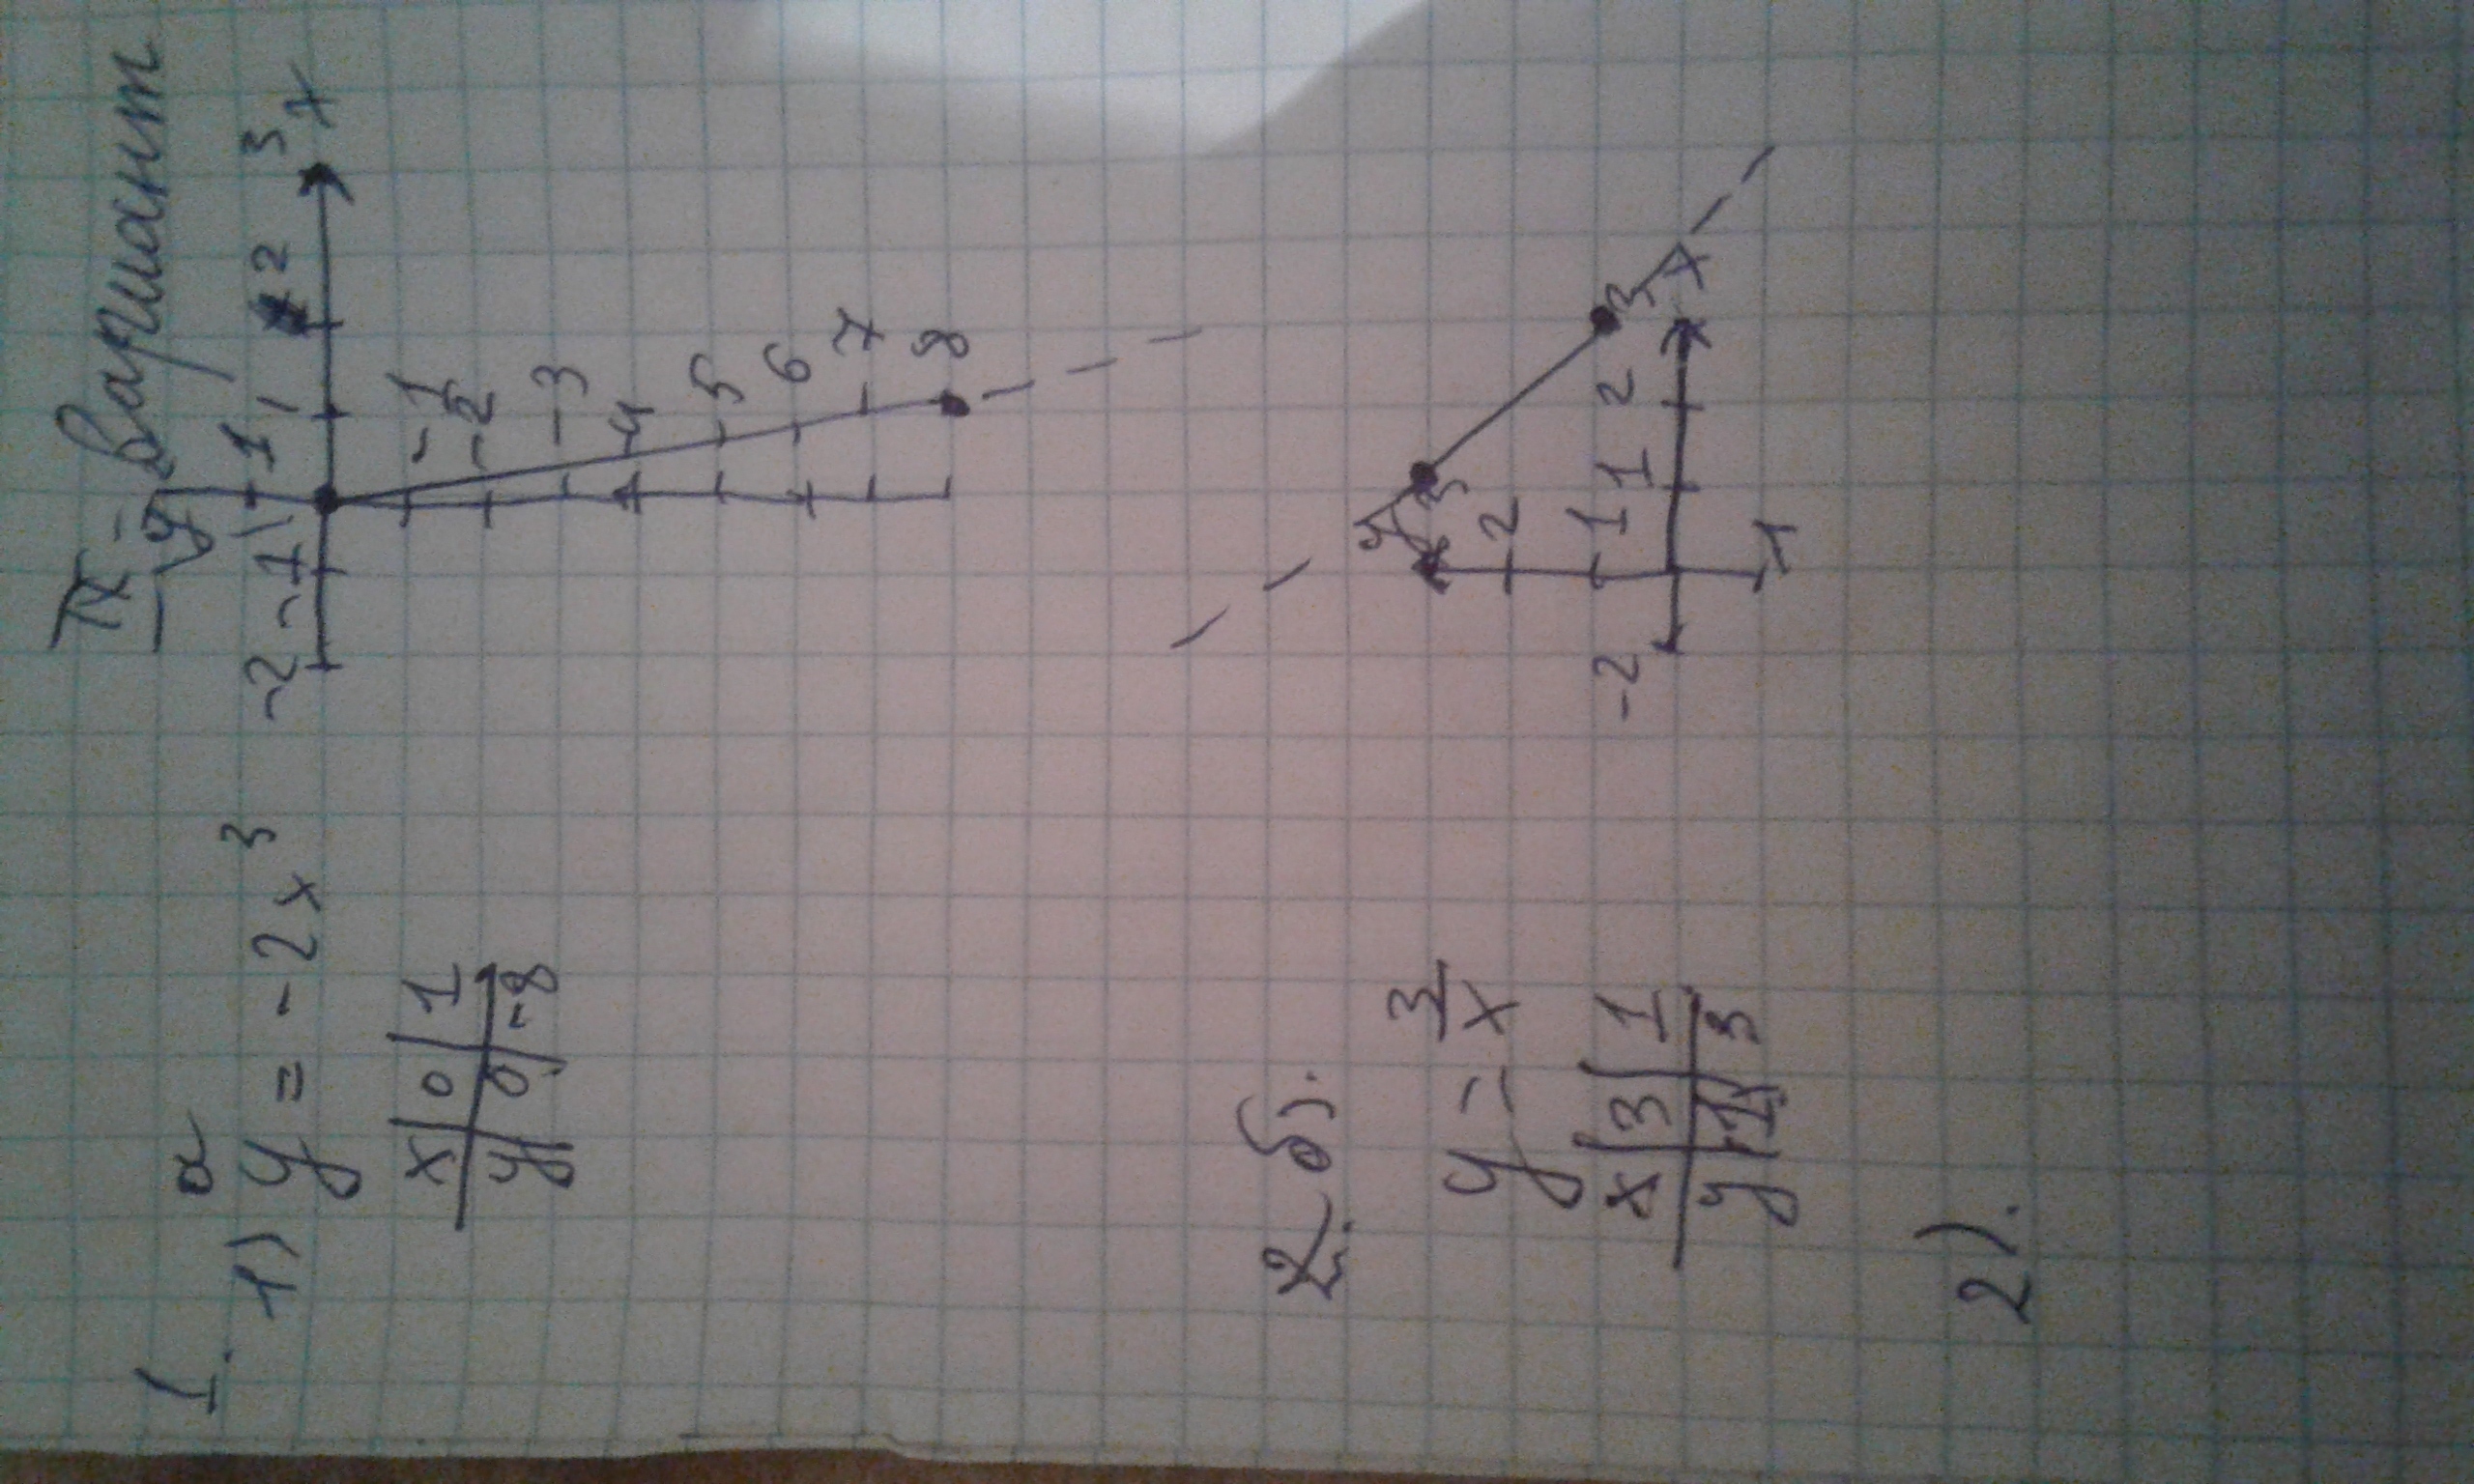 IV - Вариант
I. 1) a
y = -2x³
x | 0 | 1
y | 0 | -8
y
1
-2 -1 1 2 3 x
-1
-2
-3
4
5
6
7
8
2. б).
y = 3/x
x | 3 | 1
y | 1 | 3
y
3
2
1
-2 1 2 3 x
-1
2).